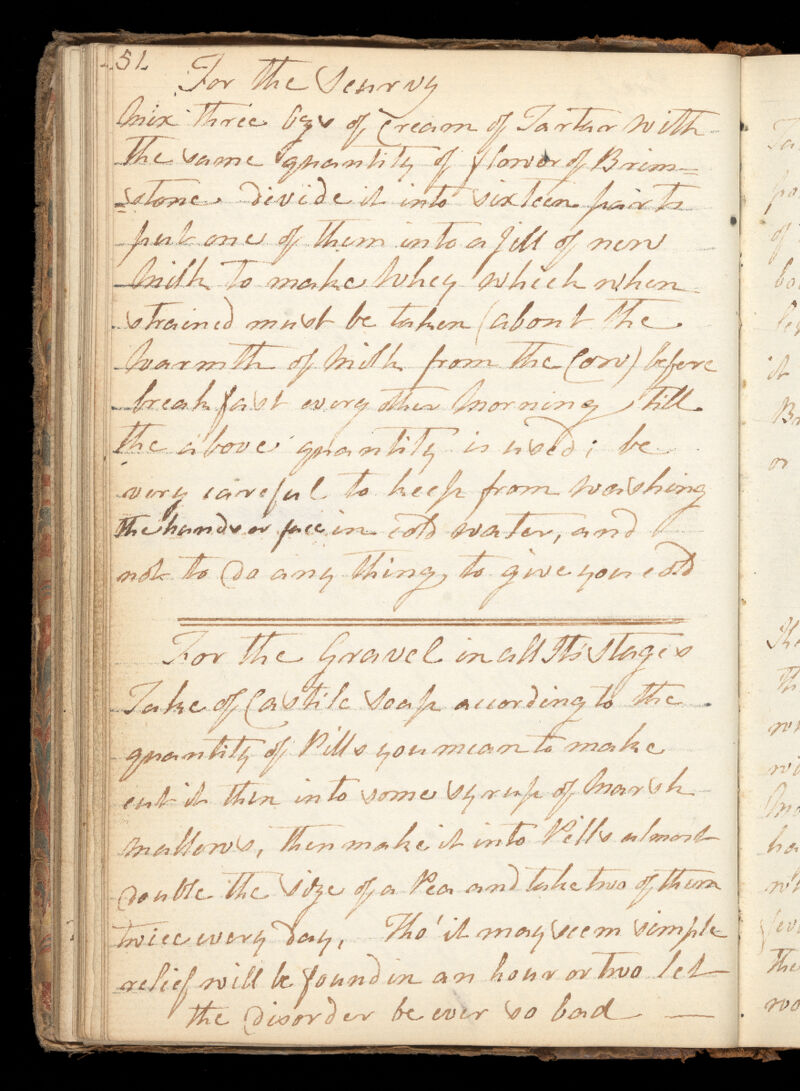 51
For the Scurvy
Mix three ozs of Cream of Tartar with
the same quantity of flower of Brim=
=stone divide it into sixteen parts
put one of them into a Jill of new
Milk to make Whey which when
strained must be taken (about the
Warmth of Milk from the Cow) before
breakfast every other Morning till
the above quantity is used; be
very careful to keep from Washing
the hands or face in cold water, and
not to do any thing to give you cold
For the Gravel in all Its Stages
Take of Castile Soap according to the
quantity of Pills you mean to make
cut it thin into some syrup of Marsh
mallows, then make it into Pills almost
double the size of a Pea and take two of them
twice every day, Tho' it may seem simple
relief will be found in an hour or two let
the disorder be ever so bad
or
it
the